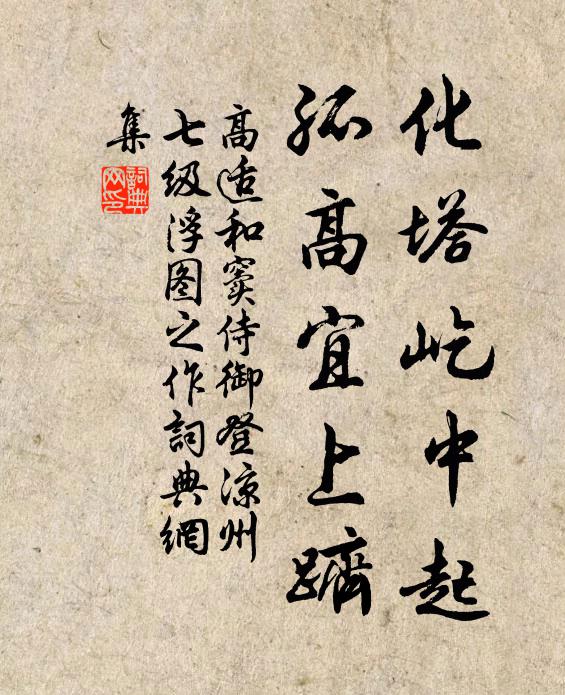 化塔屹中起
孤高宜上躋
高适和窦侍御登凉州
七级浮图之作詞典網
集
詞典
网印